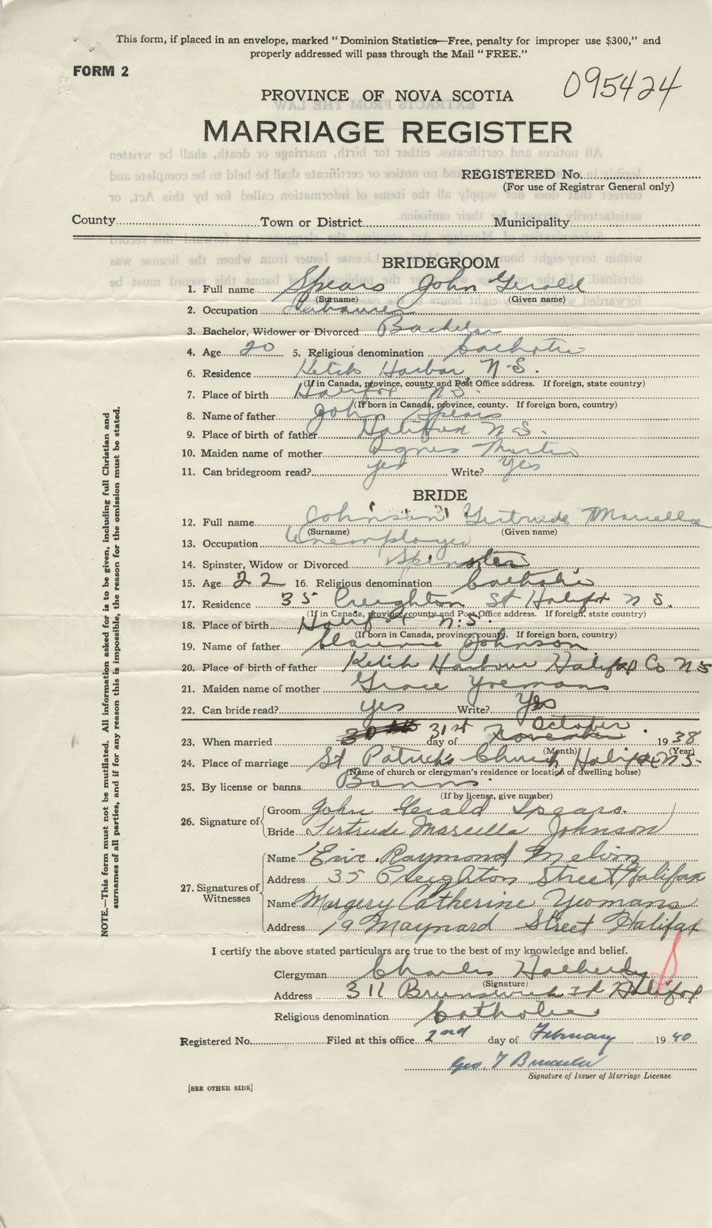 This form, if placed in an envelope, marked "Dominion Statistics—Free, penalty for improper use $300," and
properly addressed will pass through the Mail "FREE."
FORM 2
095424
PROVINCE OF NOVA SCOTIA
MARRIAGE REGISTER
REGISTERED No.
(For use of Registrar General only)
County Town or District Municipality
BRIDEGROOM
1. Full name Spears John Gerald
(Surname) (Given name)
2. Occupation
3. Bachelor, Widower or Divorced Bachelor
4. Age 20 5. Religious denomination Catholic
6. Residence Ketch Harbor N.S.
(If in Canada, province, county and Post Office address. If foreign, state country)
7. Place of birth Halifax N.S.
(If born in Canada, province, county. If foreign born, country)
8. Name of father John Spears
9. Place of birth of father Halifax N.S.
10. Maiden name of mother Agnes Martin
11. Can bridegroom read? yes Write? Yes
BRIDE
12. Full name Johnson Gertrude Marcella
(Surname) (Given name)
13. Occupation Unemployed
14. Spinster, Widow or Divorced Spinster
15. Age 22 16. Religious denomination Catholic
17. Residence 35 Creighton St Halifax N.S.
(If in Canada, province, county and Post Office address. If foreign, state country)
18. Place of birth Halifax N.S.
(If born in Canada, province, county. If foreign born, country)
19. Name of father Clarence Johnson
20. Place of birth of father Ketch Harbour Halifax Co NS
21. Maiden name of mother Grace Yoemans
22. Can bride read? yes Write? Yes
23. When married 31st day of October 1938
(Month) (Year)
24. Place of marriage St Patrick's Church Halifax N.S.
(Name of church or clergyman's residence or location of dwelling house)
25. By license or banns Banns
(If by license, give number)
26. Signature of Groom John Gerald Spears
Bride Gertrude Marcella Johnson
27. Signatures of Witnesses
Name Eric Raymond Melvin
Address 35 Creighton Street, Halifax
Name Margery Catherine Yeomans
Address 19 Maynard Street Halifax
I certify the above stated particulars are true to the best of my knowledge and belief.
Clergyman Charles
(Signature)
Address 311 Brunswick st Halifax
Religious denomination Catholic
Registered No. Filed at this office 2nd day of February 1940
Geo. T
Signature of Issuer of Marriage License
[SEE OTHER SIDE]
NOTE.—This form must not be mutilated. All information asked for is to be given, including full Christian and
surnames of all parties, and if for any reason this is impossible, the reason for the omission must be stated.